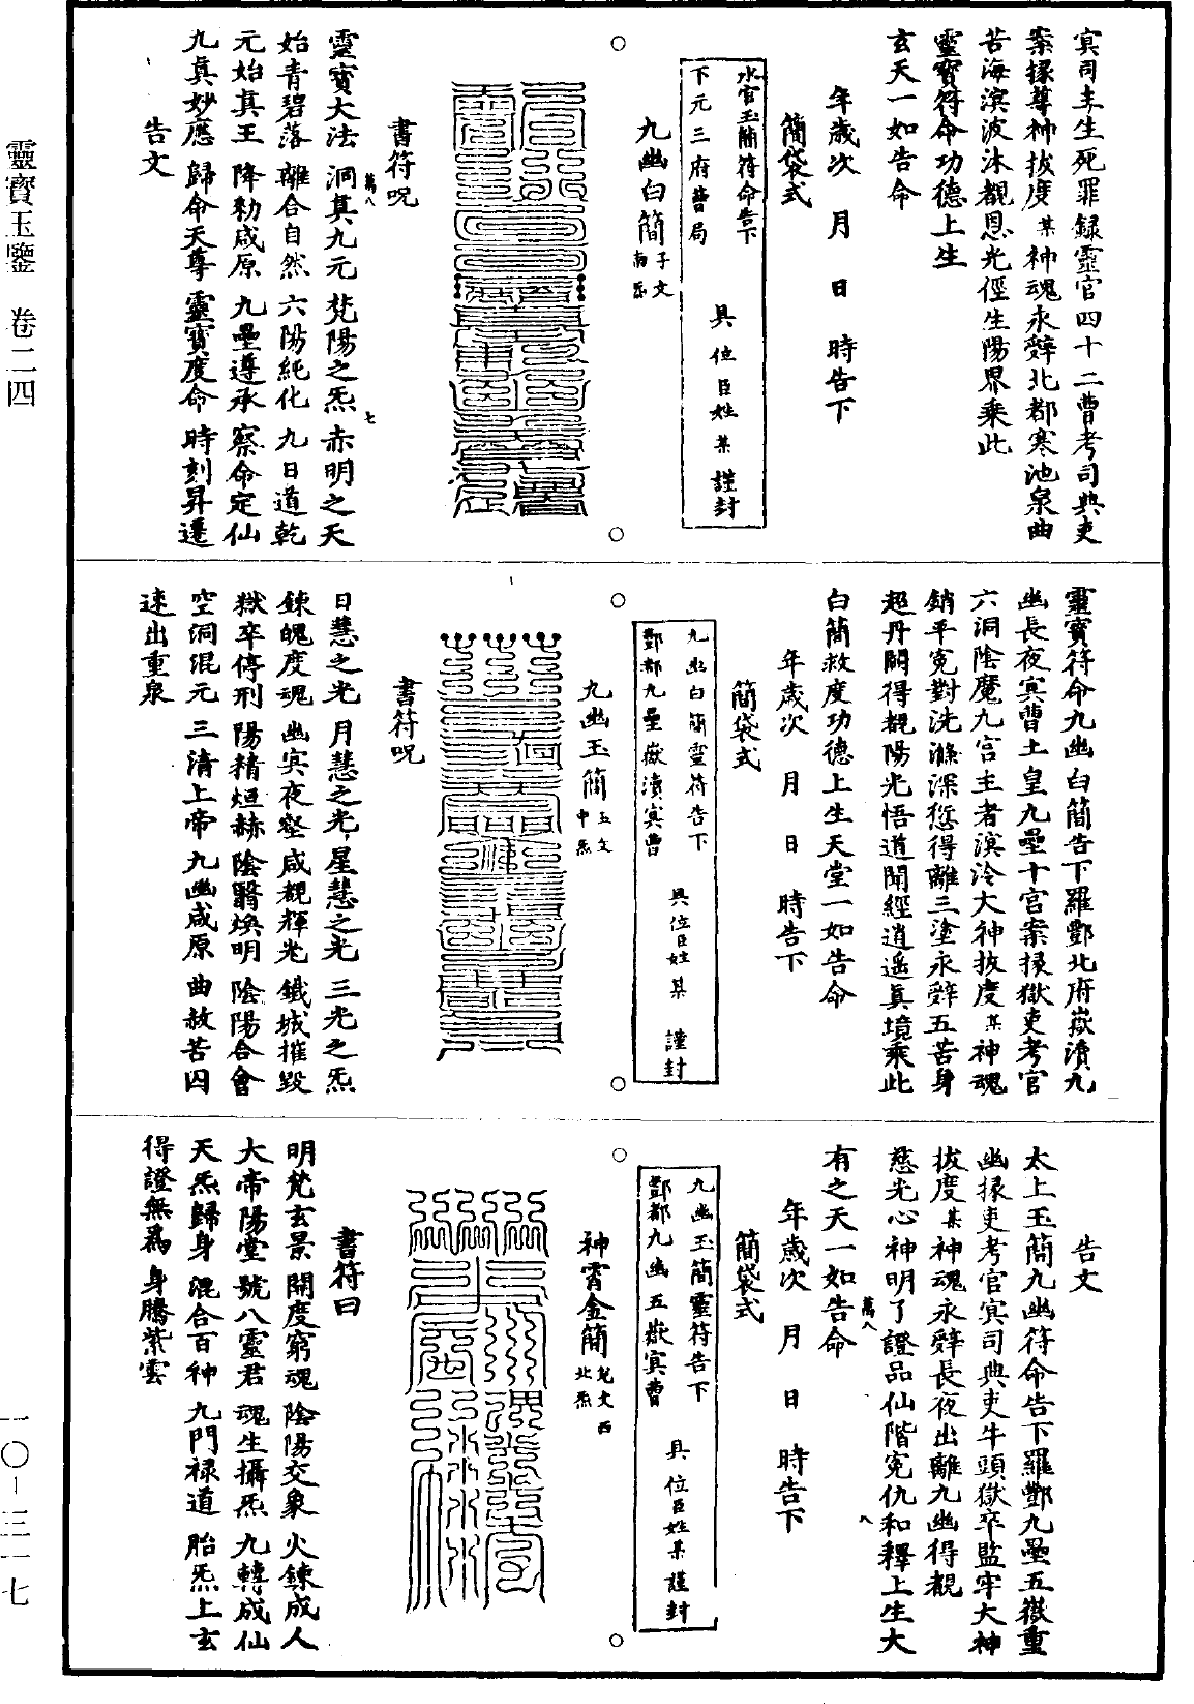 冥司主生死罪録靈官四十二曹考司典吏
案掾尊神拔度某神魂永辭北都寒池泉曲
苦海溟波沐覩恩光徑生陽界乗此
靈寶符命功德上生
玄天一如告命
年歲次　月　日　時告下
簡袋式
水官玉簡符命告下
下元三府曹局
具位臣姓某　謹封
九幽白簡子文南炁
書符呪
靈寶大法　洞真九元　梵陽之炁　赤明之天
始青碧落　離合自然　六陽純化　九日道乾
元始真王　降勑咸原　九壘遵承　察命定仙
九真妙應　歸命天尊　靈寶度命　時刻昇遷
告文
萬八
七
靈寶符命九幽白簡告下羅酆北府嶽瀆九
幽長夜冥曹土皇九壘十宫案掾獄吏考官
六洞陰魔九宫主者溟泠大神拔度某神魂
銷平寃對洗滌深愆得離三塗永辭五苦身
超丹闕得覩陽光悟道聞經逍遥真境乗此
白簡救度功德上生天堂一如告命
年歲次　月　日　時告下
簡袋式
九幽白簡靈符告下
酆都九壘嶽瀆冥曹
具位臣姓某　謹封
九幽玉簡五文中炁
書符呪
日慧之光　月慧之光　星慧之光　三光之炁
鍊魄度魂　幽冥夜壑　咸覩輝光　鐵城摧毀
獄卒停刑　陽精烜赫　陰翳煥明　陰陽合會
空洞混元　三清上帝　九幽咸原　曲赦苦囚
速出重泉
告文
太上玉簡九幽符命告下羅酆九壘五嶽重
幽掾吏考官冥司典吏牛頭獄卒監牢大神
拔度某神魂永辭長夜出離九幽得覩
慈光心神明了證品仙階寃仇和釋上生大
有之天一如告命
萬八
八
年歲次　月　日　時告下
簡袋式
九幽玉簡靈符告下
酆都九幽五嶽冥曹
具位臣姓某謹封
神霄金簡九文西北炁
書符曰
明梵玄景　開度窮魂　陰陽交象　火鍊成人
大帝陽堂　號八靈君　魂生攝炁　九轉成仙
天炁歸身　混合百神　九門禄道　胎炁上玄
得證無爲　身騰紫雲
靈寶玉鑒　卷二四
一〇－三一七